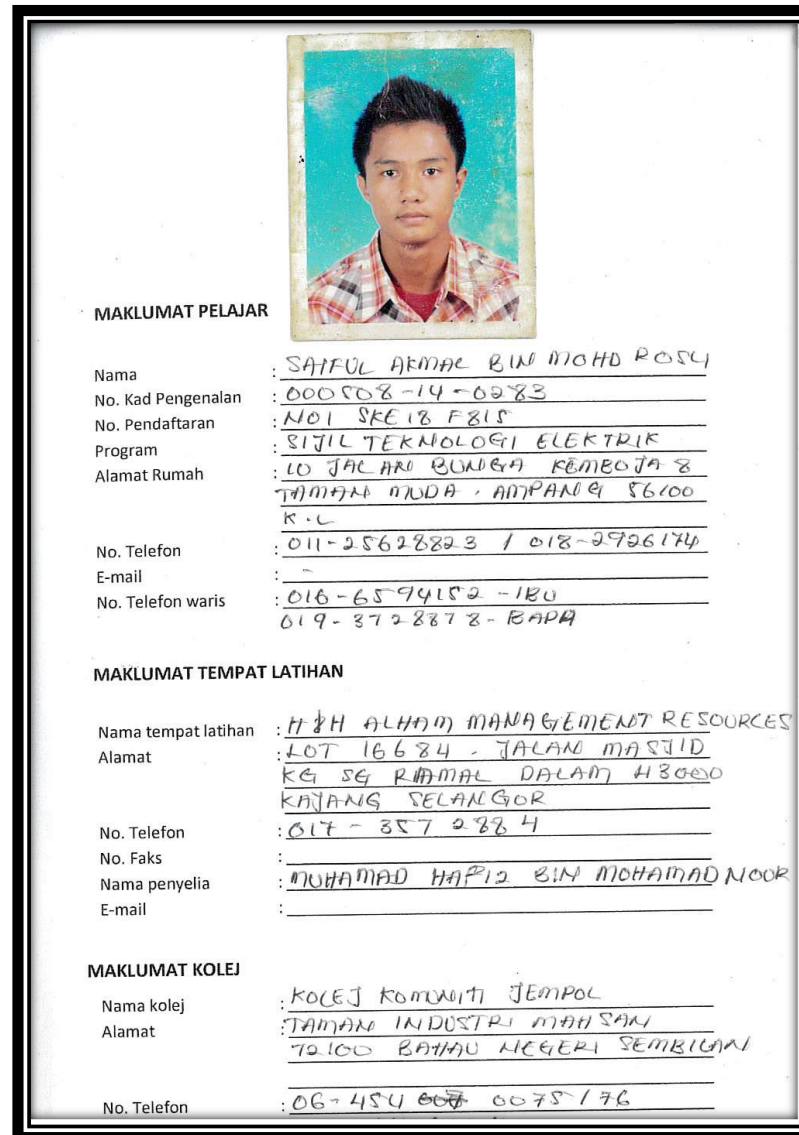 MAKLUMAT PELAJAR
Nama : SAIFUL AKMAL BIN MOHD ROSLI
No. Kad Pengenalan : 000508-14-0283
No. Pendaftaran : N01 SKE 18 F815
Program : SIJIL TEKNOLOGI ELEKTRIK
Alamat Rumah : 10 JALAN BUNGA KEMBOJA 8
TAMAN MUDA . AMPANG 56100
K.L
No. Telefon : 011-25628823 / 018-2926174
E-mail : -
No. Telefon waris : 016-6594152 - IBU
019-3728878 - BAPA
MAKLUMAT TEMPAT LATIHAN
Nama tempat latihan : H&H ALHAM MANAGEMENT RESOURCES
Alamat : LOT 16684 - JALAN MASJID
KG SG RAMAL DALAM 43000
KAJANG SELANGOR
No. Telefon : 017-357 2884
No. Faks :
Nama penyelia : MUHAMAD HAFIZ BIN MOHAMAD NOOR
E-mail :
MAKLUMAT KOLEJ
Nama kolej : KOLEJ KOMUNITI JEMPOL
Alamat : TAMAN INDUSTRI MAHSAN
72100 BAHAU NEGERI SEMBILAN
No. Telefon : 06-454 0075 / 76